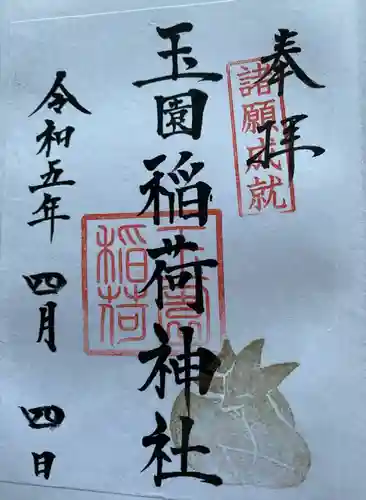 奉拝
諸願成就
玉園稲荷神社
令和五年 四月 四日